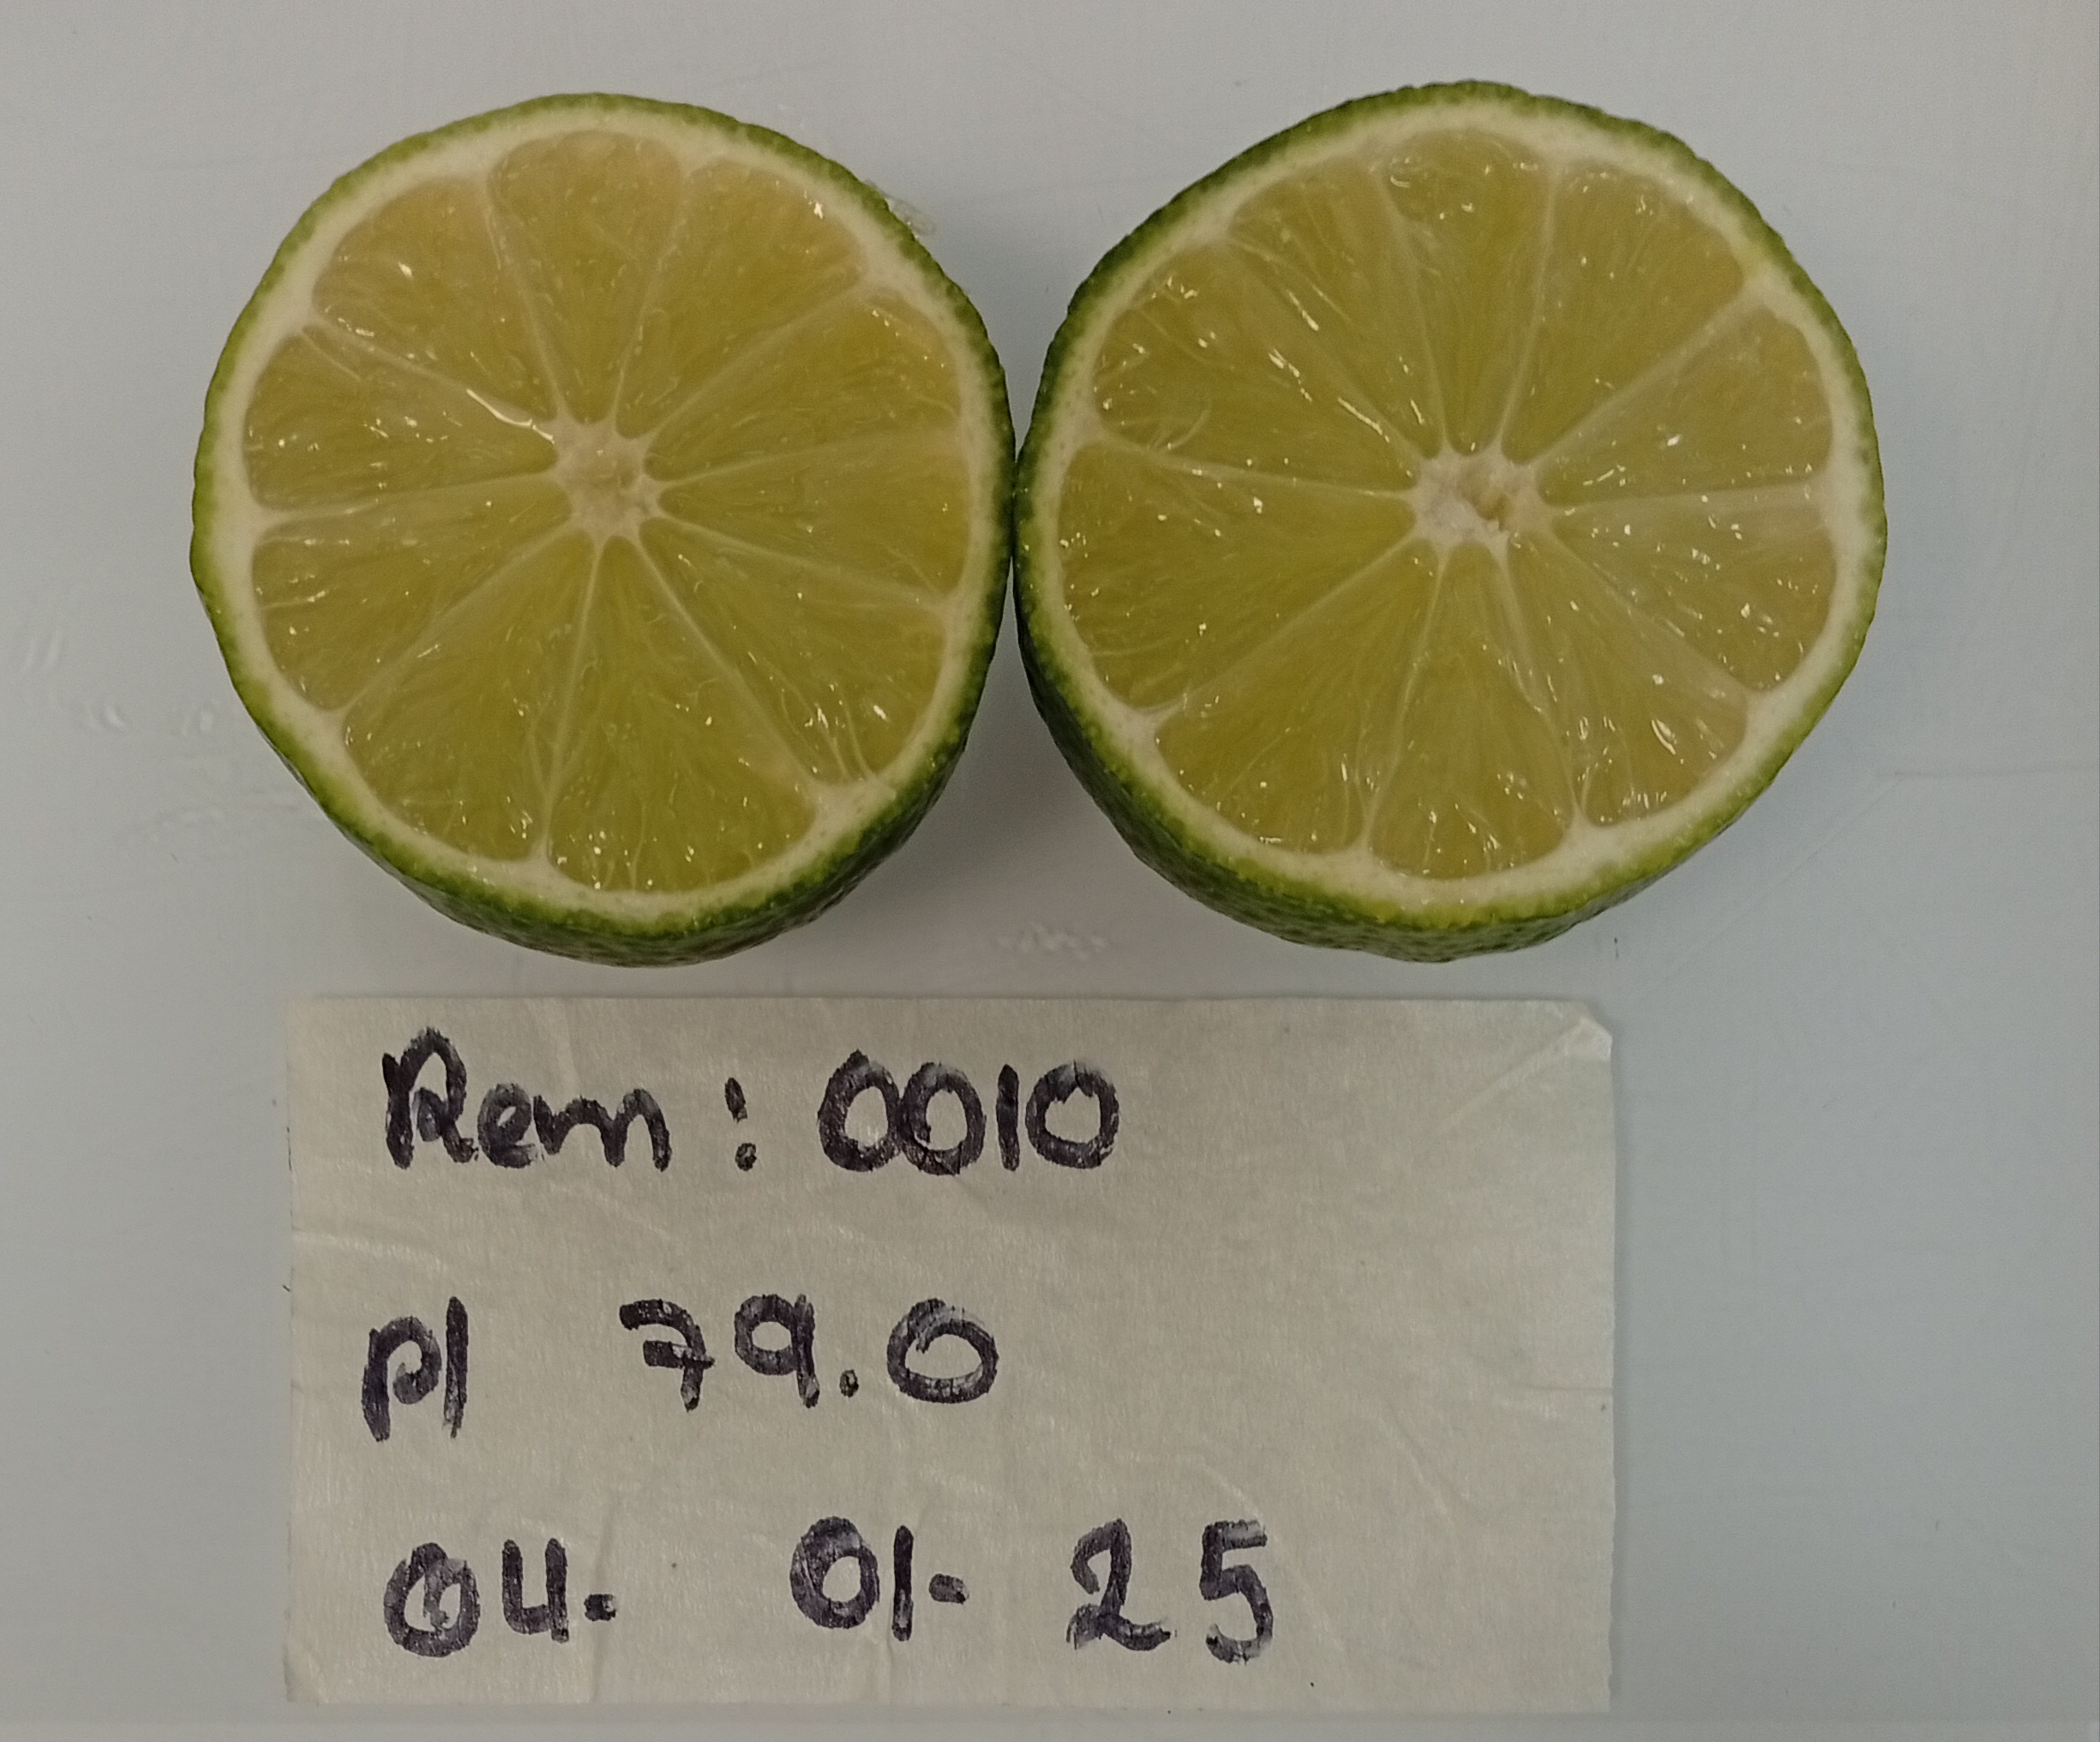 Rem: 0010
pl 79.0
04. 01- 25